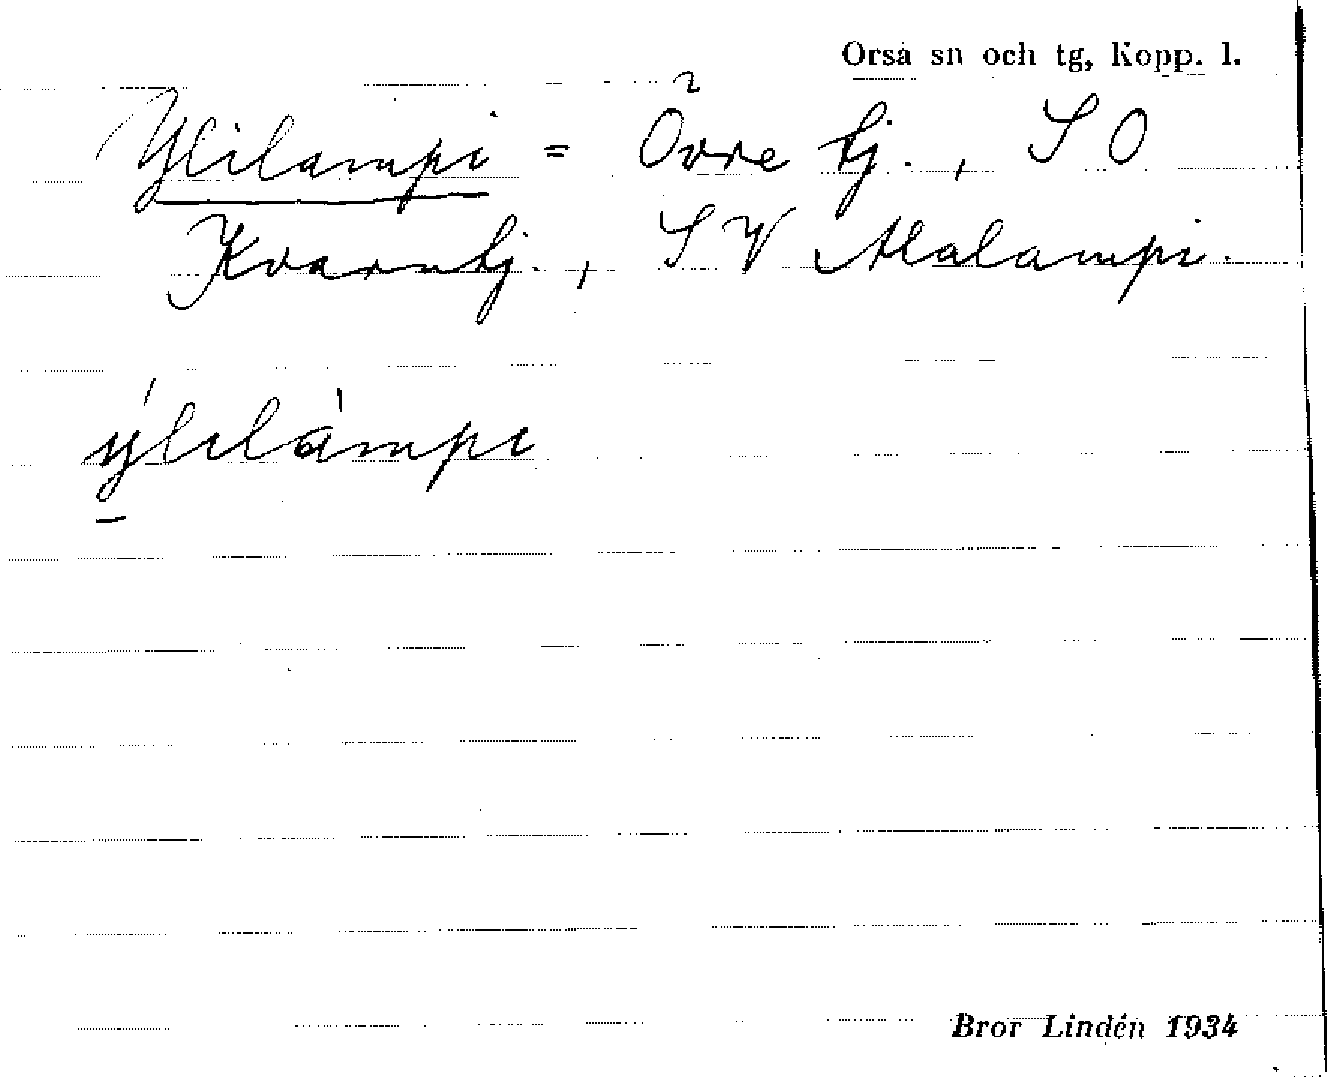 Orsa sn och tg, Kopp. l.
Ylilampi = Övre tj., S O
Kvarntj., S V Alalampi.
ýlilàmpi
Bror Lindén 1934